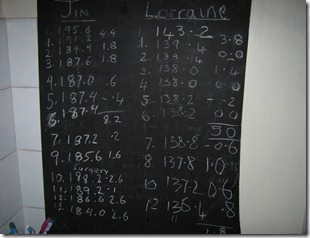 Jim
1. 195.6 4.4
1. 191.2
2. 189.4 1.8
3. 187.6 1.8
4. 187.0 .6
5. 187.4 -.4
6. 187.4 8.2
7. 187.2 .2
9. 185.6 1.6
Surgery
10. 188.2 -2.6
11. 189.2 -1
12. 186.6 2.6
184.0 2.6
Lorraine
143.2 3.8
1. 139.4 0.0
2 139.4 1.4
3 138.0 0.0
4. 138.0
5. 138.2 -.2
6. 138.2 0.0
5 0
7. 138.8 -0.6
8 137.8 1.0
10 137.2 0.6
12 136.4 .8
1.8